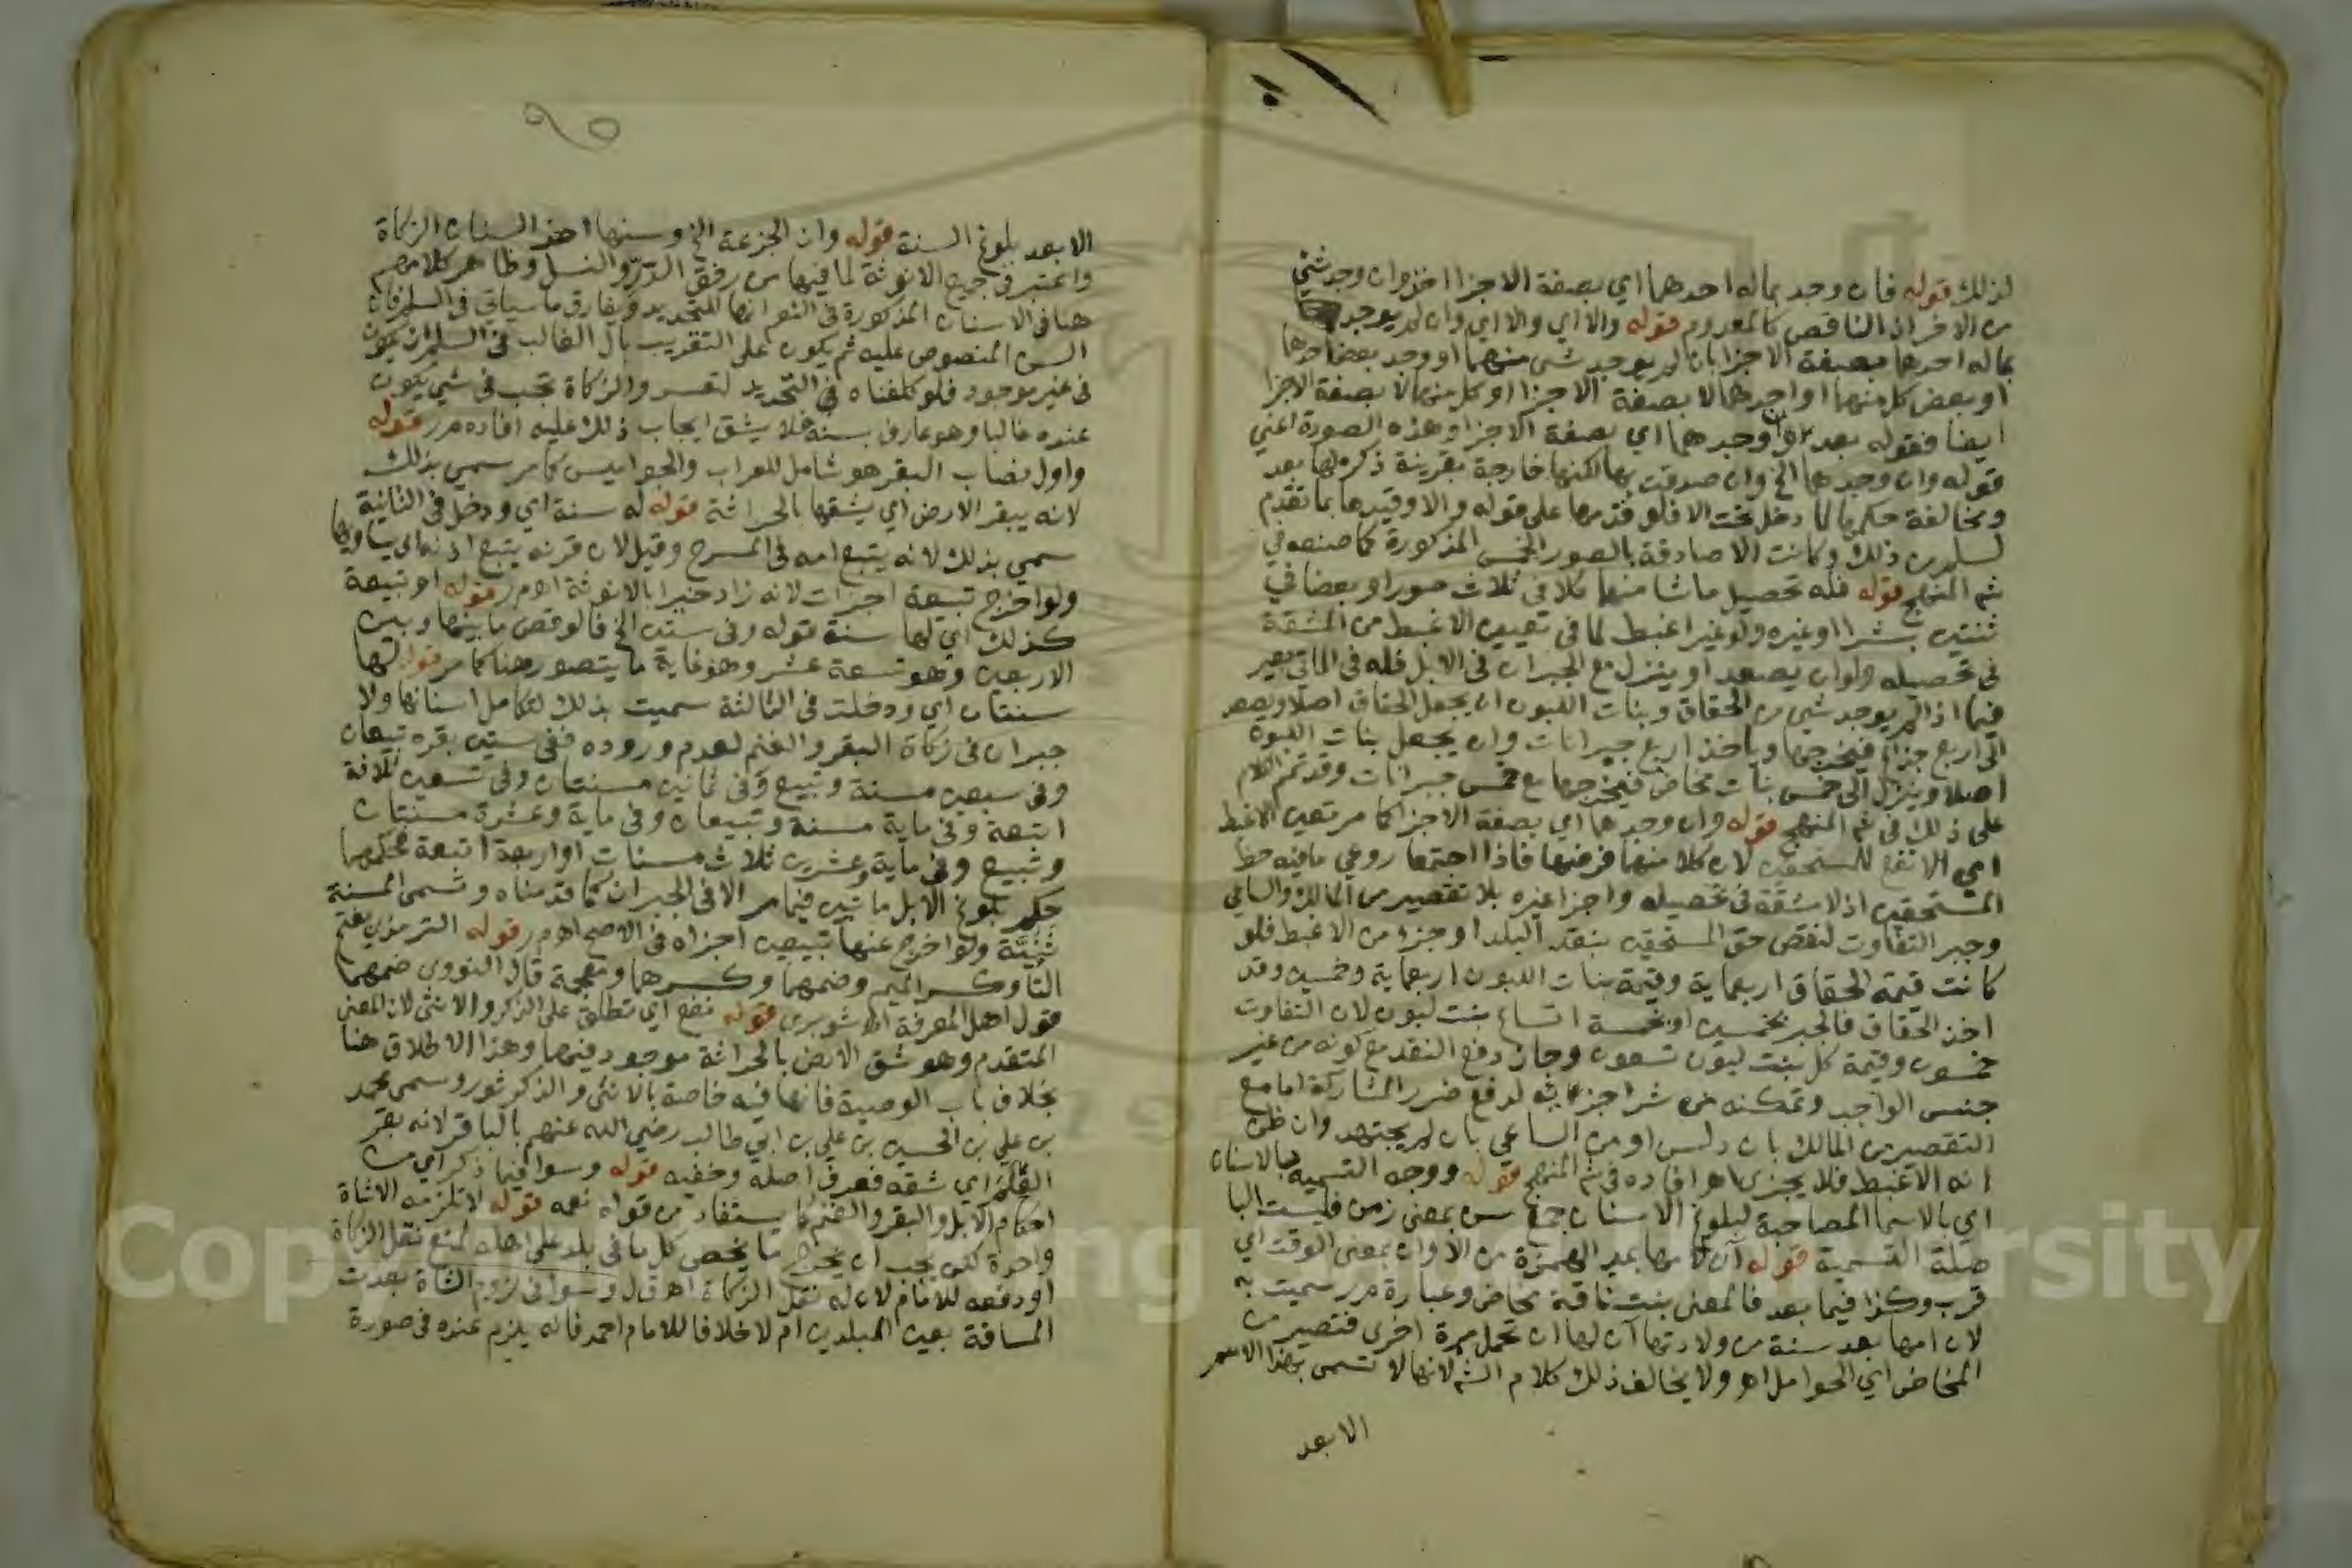 لذلك قوله فان وجد بماله احدهما اي بصفة الاجزا اخذ وان وجد شي
من الاخر اذ الناقص كالمعدوم قوله والا اي والا اي وان لم يوجد
بماله احدهما بصفة الاجزا بان لم يوجد شي منهما او وجد بعض احدهما
او بعض كل منهما او احدهما لا بصفة الاجزا او كل منهما لا بصفة الاجزا
ايضا فقوله بعد وان وجدهما اي بصفة الاجزا وهذه الصورة اعني
قوله وان وجدهما الخ وان صدقت بها لكنها خارجة بقرينة ذكره لها بعد
ومخالفة حكمها لما دخل تحت الا فلو قدمها على قوله والا وقيدها بما تقدم
لسلم من ذلك وكانت الا صادقة بالصور الخمس المذكورة كما صنعه في
شم المنهج قوله فله تحصيل ما شا منهما كلا في ثلاث صور او بعضا في
ثنتين بشرا او غيره ولو غير اغبط لما في تعيين الاغبط من المشقة
في تحصيله وله ان يصعد او ينزل مع الجبران في الابل فله في المأتي بعير
فيما اذا لم يوجد شي من الحقاق وبنات اللبون ان يجعل الحقاق اصلا ويصعد
الى اربع جزاع فيخرجها وياخذ اربع جبرانات وان يجعل بنات اللبون
اصلا وينزل الى خمس بنات مخاض فيخرجها مع خمس جبرانات وقد تم الكلام
على ذلك في شم المنهج قوله وان وجدهما اي بصفة الاجزا كما مر تعين الاغبط
اي الانفع للمستحقين لان كلا منهما فرضها فاذا اجتمعا روعي ما فيه حظ
المستحقين اذ لا مشقة في تحصيله واجزا غيره بلا تقصير من المالك والساعي
وجبر التفاوت لنقص حق المستحقين بنقد البلد او جزء من الاغبط فلو
كانت قيمة الحقاق اربعماية وقيمة بنات اللبون اربعماية وخمسين وقد
اخذ الحقاق فالجبر بخمسين او بخمسة اتساع بنت لبون لان التفاوت
خمسون وقيمة كل بنت لبون تسعون وجاز دفع النقد مع كونه من غير
جنس الواجب وتمكنه من شرا جزئه لدفع ضرر المشاركة اما مع
التقصير من المالك بان دلس او من الساعي بان لم يجتهد وان ظن
انه الاغبط فلا يجزى اهـ افاده في شم المنهج قوله ووجه التسمية بالاسنان
اي بالاسما المصاحبة لبلوغ الاسنان جمع سن بمعنى زمن فليست البا
صلة التسمية قوله آن لامها بمد الهمزة من الاوان بمعنى الوقت اي
قرب وكذا فيما بعد فالمعنى بنت ناقة مخاض وعبارة مرر سميت به
لان امها بعد سنة من ولادتها آن لها ان تحمل مرة اخرى فتصير من
المخاض اي الحوامل اهـ ولا يخالف ذلك كلام الشم لانها لا تسمى بهذا الاسم
الا بعد
الا بعد بلوغ السنة قوله وان الجزعة الخ وسنها اخذ السنان الزكاة
واعتبر في جميع الانوثة لما فيها من رفق الدر والنسل وظاهر كلامهم
هنا في الاسنان المذكورة في النعم انها للتحديد ويفارق ما سياتي في السلم فان
السن المنصوص عليه ثم يكون على التقريب بان الغالب في السلم ان يكون
في غير موجود فلو كلفناه في التحديد لتعسر والزكاة تجب في شي يكون
عنده غالبا وهو عارف بسنه فلا يشق ايجاب ذلك عليه افاده مرر قوله
واول نصاب البقر هو شامل للعراب والجواميس كما مر سمي بذلك
لانه يبقر الارض اي يشقها بالحراثة قوله له سنة اي ودخل في الثانية
سمي بذلك لانه يتبع امه في المسرح وقيل لان قرنه يتبع اذنه اي يساويها
ولو اخرج تبيعة اجزات لانه زاد خيرا بالانوثة اهـ مر قوله او تبيعة
كذلك اي لها سنة قوله وفي ستين الخ فالوقص ما بينها وبين
الاربعين وهو تسعة عشر وهو غاية ما يتصور هنا كما مر قوله لها
سنتان اي ودخلت في الثالثة سميت بذلك لتكامل اسنانها ولا
جبران في زكاة البقر والغنم لعدم وروده ففي ستين بقره تبيعان
وفي سبعين مسنة وتبيع وفي ثمانين مسنتان وفي تسعين ثلاثة
اتبعة وفي ماية مسنة وتبيعان وفي ماية وعشرة مسنتان
وتبيع وفي ماية وعشرين ثلاث مسنات او اربعة اتبعة فحكمها
حكم بلوغ الابل مائتين فيما مر الا في الجبران كما قدمناه وتسمى المسنة
ثنية ولو اخرج عنها تبيعين اجزاه في الاصح اهـ مر قوله الترمذي بفتح
التا وكسر الميم وضمهما وكسرهما ومعجمة قال النووي ضمهما
قول اهل المعرفة اهـ شوبري قوله نفع اي تطلق على الذكر والانثى لان المعنى
المتقدم وهو شق الارض بالحراثة موجود فيهما وهذا الاطلاق هنا
بخلاف باب الوصية فانها فيه خاصة بالانثى والذكر ثور وسمي محمد
بن علي بن الحسين بن علي بن ابي طالب رضي الله عنهم بالباقر لانه بقر
العلم اي شقه فعرف اصله وخفيه قوله وسوا فيما ذكر اي من
احكام الابل والبقر والغنم كما يستفاد من قوله نعمه قوله لا تلزمه الا شاة
واحدة لكن يجب ان يخرج ما يخص كل ما في بلد على اهله لمنع نقل الزكاة
او دفعه للامام لان له نقل الزكاة اهـ قال وسوا في لزوم الشاة بعدت
المسافة بين البلدين ام لا خلافا للامام احمد فانه يلزم عنده في صورة